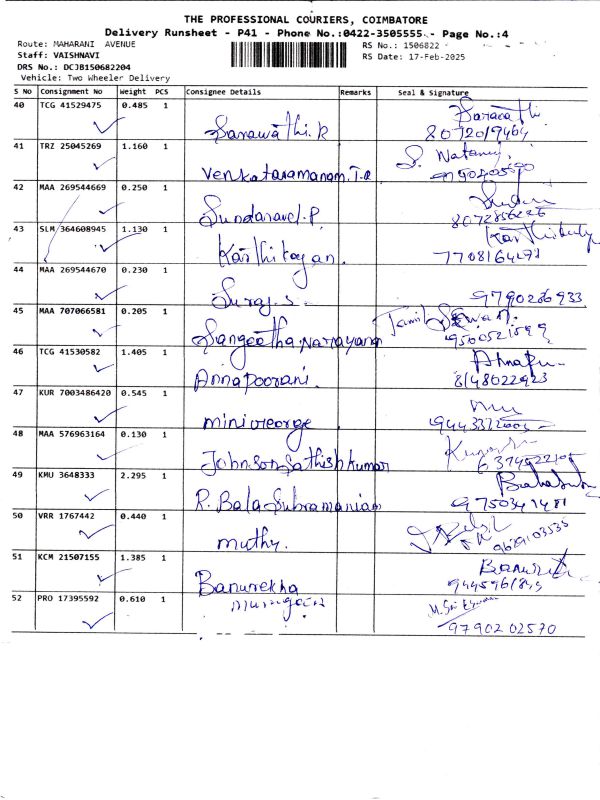 THE PROFESSIONAL COURIERS, COIMBATORE
Delivery Runsheet - P41 - Phone No.:0422-3505555 - Page No.:4
Route: MAHARANI AVENUE
RS No.: 1506822
Staff: VAISHNAVI
RS Date: 17-Feb-2025
DRS No.: DCJB150682204
Vehicle: Two Wheeler Delivery
S No Consignment No Weight PCS Consignee Details Remarks Seal & Signature
40 TCG 41529475 0.485 1
Sarawathi.R 8072019464
41 TRZ 25045269 1.160 1
Venkataramanam.T.R
42 MAA 269544669 0.250 1
Sundaravel.P. 8072856226
43 SLM 364608945 1.130 1
Karthikayan.
44 MAA 269544670 0.230 1
Suraj.S. 9790266933
45 MAA 707066581 0.205 1
Sangeetha Narayana
46 TCG 41530582 1.405 1
Annapoorani. 8148022923
47 KUR 7003486420 0.545 1
mini George
48 MAA 576963164 0.130 1
Johnson Sathish kumar
49 KMU 3648333 2.295 1
R. Bala Subramaniam
50 VRR 1767442 0.440 1
muthy. 9629103535
51 KCM 21507155 1.385 1
Banurekha
52 PRO 17395592 0.610 1
9790202570